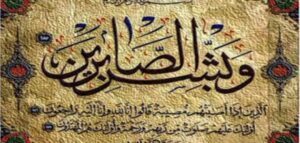 وبشر الصابرين
الذين إذا أصابتهم مصيبة قالوا إنا لله وإنا إليه راجعون
أولئك عليهم صلوات من ربهم ورحمة وأولئك هم المهتدون